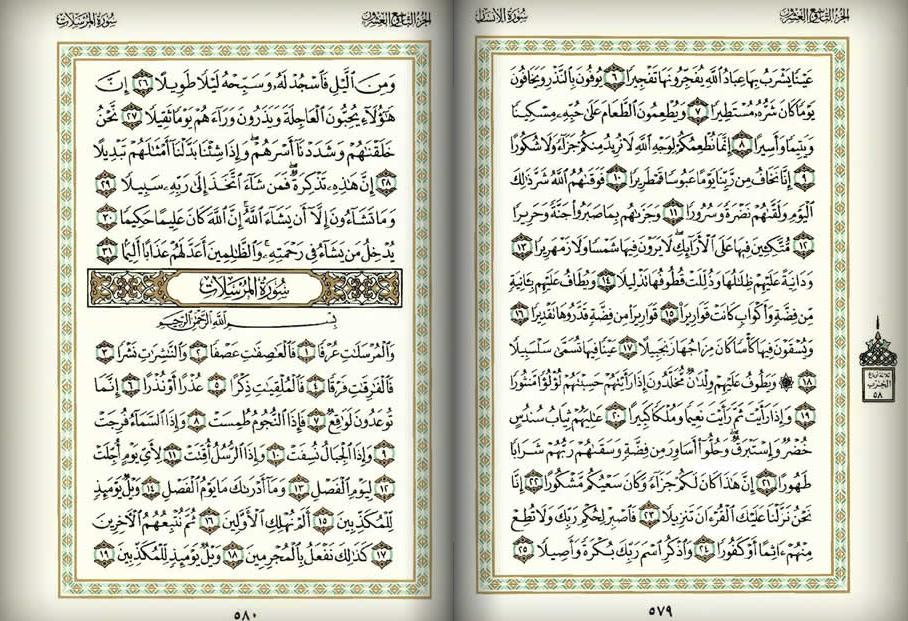 الجزء التاسع والعشرون
سورة الإنسان
عَيْنًا يَشْرَبُ بِهَا عِبَادُ اللَّهِ يُفَجِّرُونَهَا تَفْجِيرًا ٦ يُوفُونَ بِالنَّذْرِ وَيَخَافُونَ
يَوْمًا كَانَ شَرُّهُ مُسْتَطِيرًا ٧ وَيُطْعِمُونَ الطَّعَامَ عَلَىٰ حُبِّهِ مِسْكِينًا
وَيَتِيمًا وَأَسِيرًا ٨ إِنَّمَا نُطْعِمُكُمْ لِوَجْهِ اللَّهِ لَا نُرِيدُ مِنكُمْ جَزَاءً وَلَا شُكُورًا
٩ إِنَّا نَخَافُ مِن رَّبِّنَا يَوْمًا عَبُوسًا قَمْطَرِيرًا ١٠ فَوَقَىٰهُمُ اللَّهُ شَرَّ ذَٰلِكَ
الْيَوْمِ وَلَقَّىٰهُمْ نَضْرَةً وَسُرُورًا ١١ وَجَزَىٰهُم بِمَا صَبَرُوا جَنَّةً وَحَرِيرًا
١٢ مُّتَّكِـِٔينَ فِيهَا عَلَى الْأَرَائِكِ ۖ لَا يَرَوْنَ فِيهَا شَمْسًا وَلَا زَمْهَرِيرًا ١٣
وَدَانِيَةً عَلَيْهِمْ ظِلَٰلُهَا وَذُلِّلَتْ قُطُوفُهَا تَذْلِيلًا ١٤ وَيُطَافُ عَلَيْهِم بِـَٔانِيَةٍ
مِّن فِضَّةٍ وَأَكْوَابٍ كَانَتْ قَوَارِيرَا۠ ١٥ قَوَارِيرَا۟ مِن فِضَّةٍ قَدَّرُوهَا تَقْدِيرًا ١٦
وَيُسْقَوْنَ فِيهَا كَأْسًا كَانَ مِزَاجُهَا زَنجَبِيلًا ١٧ عَيْنًا فِيهَا تُسَمَّىٰ سَلْسَبِيلًا
١٨ ۞ وَيَطُوفُ عَلَيْهِمْ وِلْدَٰنٌ مُّخَلَّدُونَ إِذَا رَأَيْتَهُمْ حَسِبْتَهُمْ لُؤْلُؤًا مَّنثُورًا
١٩ وَإِذَا رَأَيْتَ ثَمَّ رَأَيْتَ نَعِيمًا وَمُلْكًا كَبِيرًا ٢٠ عَٰلِيَهُمْ ثِيَابُ سُندُسٍ
خُضْرٌ وَإِسْتَبْرَقٌ ۖ وَحُلُّوا أَسَاوِرَ مِن فِضَّةٍ وَسَقَىٰهُمْ رَبُّهُمْ شَرَابًا
طَهُورًا ٢١ إِنَّ هَٰذَا كَانَ لَكُمْ جَزَاءً وَكَانَ سَعْيُكُم مَّشْكُورًا ٢٢ إِنَّا
نَحْنُ نَزَّلْنَا عَلَيْكَ الْقُرْءَانَ تَنزِيلًا ٢٣ فَاصْبِرْ لِحُكْمِ رَبِّكَ وَلَا تُطِعْ
مِنْهُمْ ءَاثِمًا أَوْ كَفُورًا ٢٤ وَاذْكُرِ اسْمَ رَبِّكَ بُكْرَةً وَأَصِيلًا ٢٥
ثلاثة أرباع
الحزب
٥٨
٥٧٩
الجزء التاسع والعشرون
سورة المرسلات
وَمِنَ الَّيْلِ فَاسْجُدْ لَهُ وَسَبِّحْهُ لَيْلًا طَوِيلًا ٢٦ إِنَّ
هَٰؤُلَاءِ يُحِبُّونَ الْعَاجِلَةَ وَيَذَرُونَ وَرَاءَهُمْ يَوْمًا ثَقِيلًا ٢٧ نَّحْنُ
خَلَقْنَٰهُمْ وَشَدَدْنَا أَسْرَهُمْ ۖ وَإِذَا شِئْنَا بَدَّلْنَا أَمْثَٰلَهُمْ تَبْدِيلًا
٢٨ إِنَّ هَٰذِهِ تَذْكِرَةٌ ۖ فَمَن شَاءَ اتَّخَذَ إِلَىٰ رَبِّهِ سَبِيلًا ٢٩
وَمَا تَشَاءُونَ إِلَّا أَن يَشَاءَ اللَّهُ ۚ إِنَّ اللَّهَ كَانَ عَلِيمًا حَكِيمًا ٣٠
يُدْخِلُ مَن يَشَاءُ فِي رَحْمَتِهِ ۚ وَالظَّٰلِمِينَ أَعَدَّ لَهُمْ عَذَابًا أَلِيمًا ٣١
سورة المرسلات
بِسْمِ اللَّهِ الرَّحْمَٰنِ الرَّحِيمِ
وَالْمُرْسَلَٰتِ عُرْفًا ١ فَالْعَٰصِفَٰتِ عَصْفًا ٢ وَالنَّٰشِرَٰتِ نَشْرًا ٣
فَالْفَٰرِقَٰتِ فَرْقًا ٤ فَالْمُلْقِيَٰتِ ذِكْرًا ٥ عُذْرًا أَوْ نُذْرًا ٦ إِنَّمَا
تُوعَدُونَ لَوَٰقِعٌ ٧ فَإِذَا النُّجُومُ طُمِسَتْ ٨ وَإِذَا السَّمَاءُ فُرِجَتْ
٩ وَإِذَا الْجِبَالُ نُسِفَتْ ١٠ وَإِذَا الرُّسُلُ أُقِّتَتْ ١١ لِأَيِّ يَوْمٍ أُجِّلَتْ
١٢ لِيَوْمِ الْفَصْلِ ١٣ وَمَا أَدْرَىٰكَ مَا يَوْمُ الْفَصْلِ ١٤ وَيْلٌ يَوْمَئِذٍ
لِّلْمُكَذِّبِينَ ١٥ أَلَمْ نُهْلِكِ الْأَوَّلِينَ ١٦ ثُمَّ نُتْبِعُهُمُ الْءَاخِرِينَ
١٧ كَذَٰلِكَ نَفْعَلُ بِالْمُجْرِمِينَ ١٨ وَيْلٌ يَوْمَئِذٍ لِّلْمُكَذِّبِينَ ١٩
٥٨٠